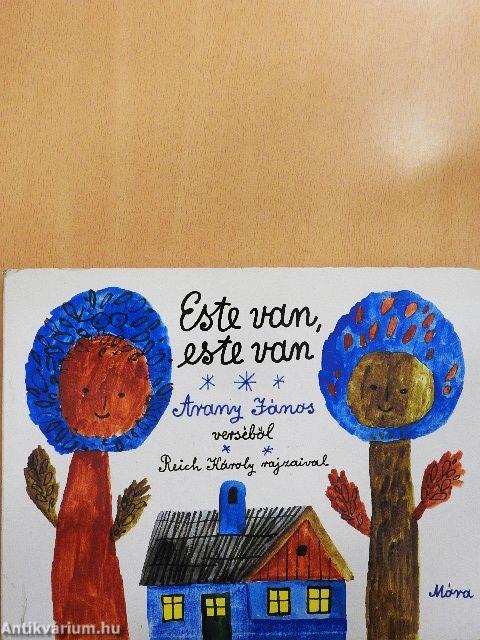 Este van,
este van
Arany János
verséből
Reich Károly rajzaival
Móra
Antikvárium.hu